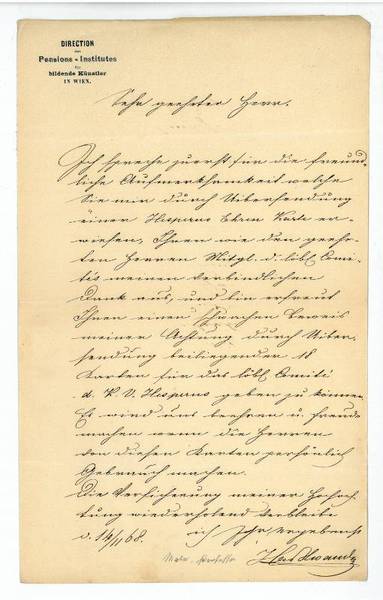 DIRECTION
des
Pensions-Institutes
für
bildende Künstler
IN WIEN.
Sehr geehrter Herr.
Ich spreche zuerst für die freund-
liche Aufmerksamkeit welche
Sie mir durch Uibersendung
einer Hesperus Ehren Karte er-
wiesen, Ihnen wie den geehr-
ten Herren Mitgl. d. löbl. Comi-
tés meinen verbindlichen
Dank aus, und bin erfreut
Ihnen einen schwachen Beweis
meiner Achtung durch Uiber-
sendung beiliegender 18
Karten für das löbl. Comité
d. K. V. Hesperus geben zu können.
Es wird uns beehren u. Freude
machen wenn die Herren
von diesen Karten persönlich
Gebrauch machen.
Die Versicherung meiner Hochach-
tung wiederholend verbleibe
ich Ihr ergebenst